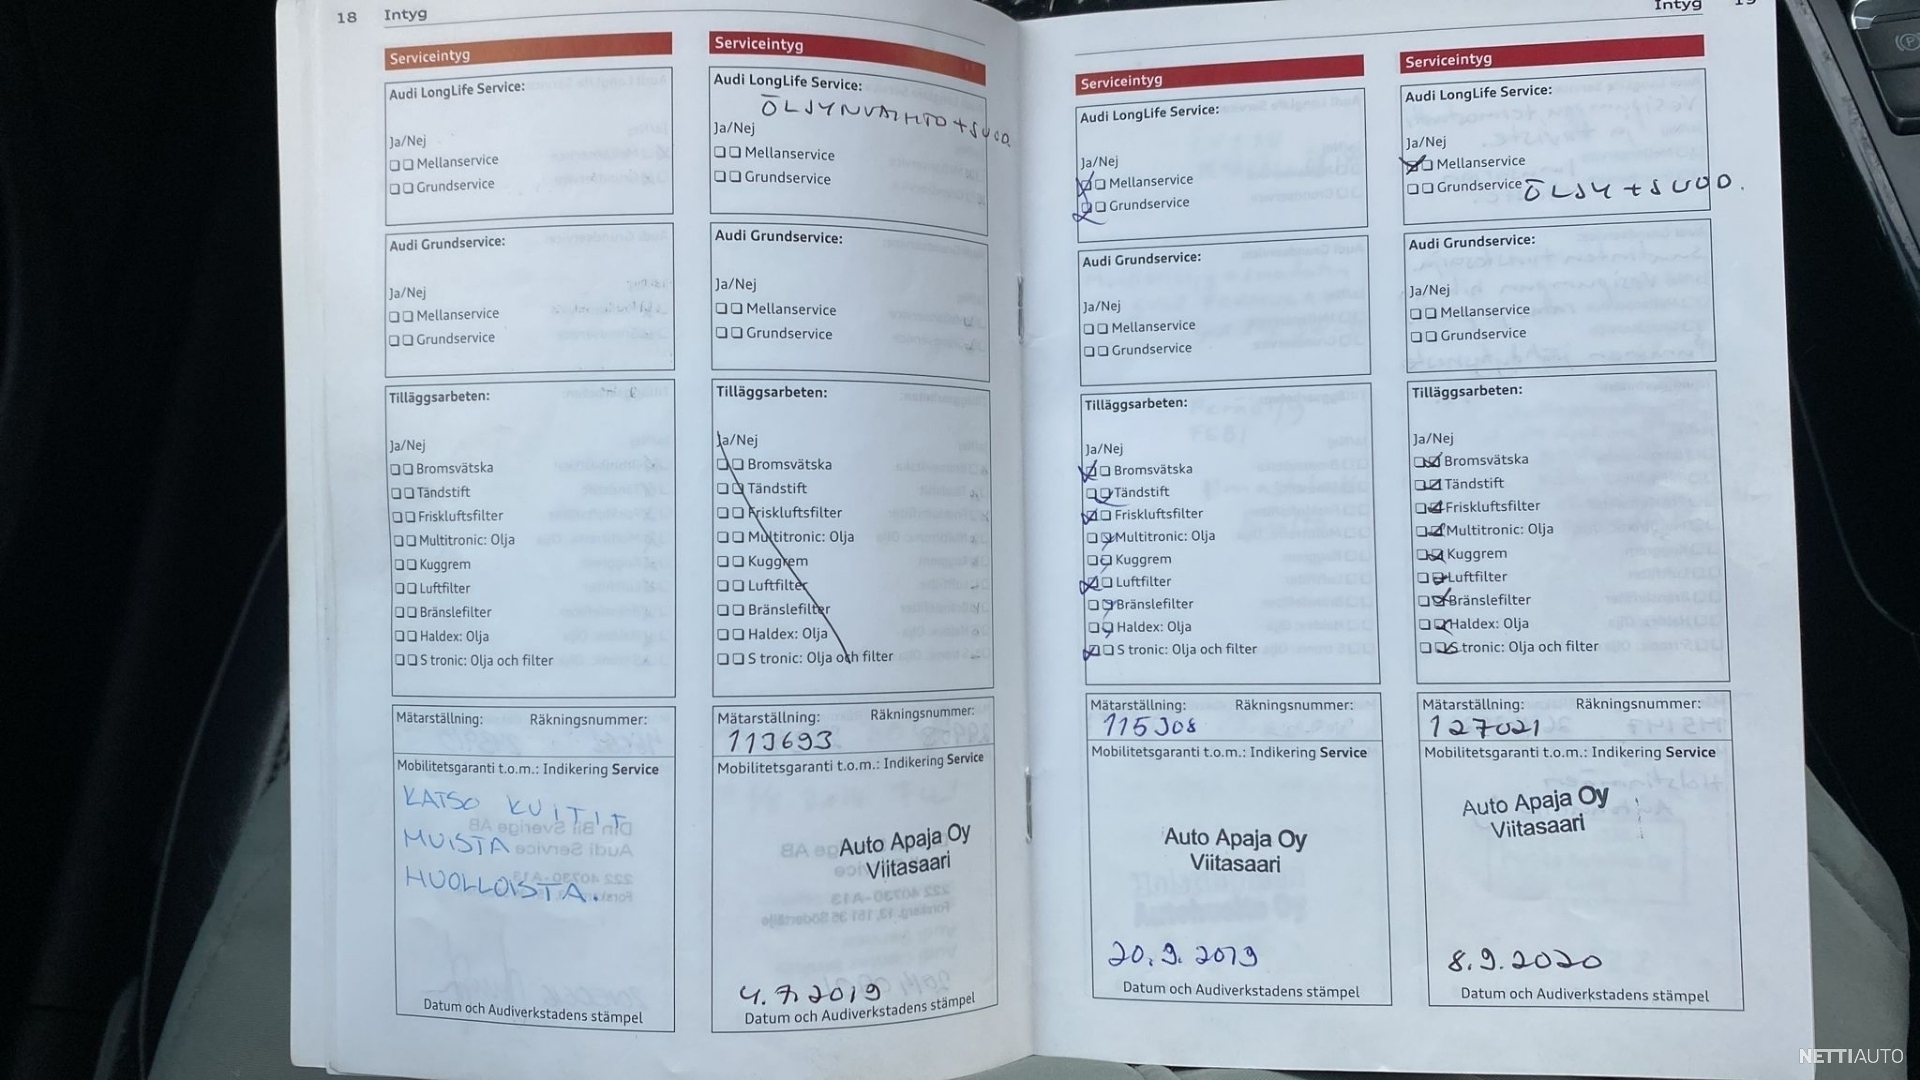 18 Intyg
Serviceintyg
Audi LongLife Service:
Ja/Nej
Mellanservice
Grundservice
Audi Grundservice:
Ja/Nej
Mellanservice
Grundservice
Tilläggsarbeten:
Ja/Nej
Bromsvätska
Tändstift
Friskluftsfilter
Multitronic: Olja
Kuggrem
Luftfilter
Bränslefilter
Haldex: Olja
S tronic: Olja och filter
Mätarställning: Räkningsnummer:
Mobilitetsgaranti t.o.m.: Indikering Service
KATSO KUITIT
MUISTA
HUOLLOISTA.
Datum och Audiverkstadens stämpel
Serviceintyg
Audi LongLife Service:
ÖLJYNVAIHTO + SUOD.
Ja/Nej
Mellanservice
Grundservice
Audi Grundservice:
Ja/Nej
Mellanservice
Grundservice
Tilläggsarbeten:
Ja/Nej
Bromsvätska
Tändstift
Friskluftsfilter
Multitronic: Olja
Kuggrem
Luftfilter
Bränslefilter
Haldex: Olja
S tronic: Olja och filter
Mätarställning: Räkningsnummer:
113693
Mobilitetsgaranti t.o.m.: Indikering Service
Auto Apaja Oy
Viitasaari
4.7.2019
Datum och Audiverkstadens stämpel
Intyg 19
Serviceintyg
Audi LongLife Service:
Ja/Nej
Mellanservice
Grundservice
Audi Grundservice:
Ja/Nej
Mellanservice
Grundservice
Tilläggsarbeten:
Ja/Nej
Bromsvätska
Tändstift
Friskluftsfilter
Multitronic: Olja
Kuggrem
Luftfilter
Bränslefilter
Haldex: Olja
S tronic: Olja och filter
Mätarställning: Räkningsnummer:
115308
Mobilitetsgaranti t.o.m.: Indikering Service
Auto Apaja Oy
Viitasaari
20.9.2019
Datum och Audiverkstadens stämpel
Serviceintyg
Audi LongLife Service:
Ja/Nej
Mellanservice
Grundservice ÖLJY + SUOD.
Audi Grundservice:
Ja/Nej
Mellanservice
Grundservice
Tilläggsarbeten:
Ja/Nej
Bromsvätska
Tändstift
Friskluftsfilter
Multitronic: Olja
Kuggrem
Luftfilter
Bränslefilter
Haldex: Olja
S tronic: Olja och filter
Mätarställning: Räkningsnummer:
127021
Mobilitetsgaranti t.o.m.: Indikering Service
Auto Apaja Oy
Viitasaari
8.9.2020
Datum och Audiverkstadens stämpel
NETTIAUTO